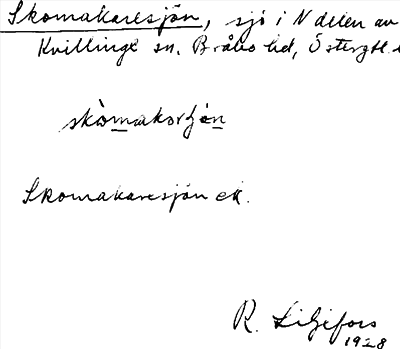 Skomakaresjön, sjö i N delen av
Kvillinge sn. Bråbo hd, Östergtl.
skòmakarʃön
Skomakaresjön ek.
R. Liljefors
1928